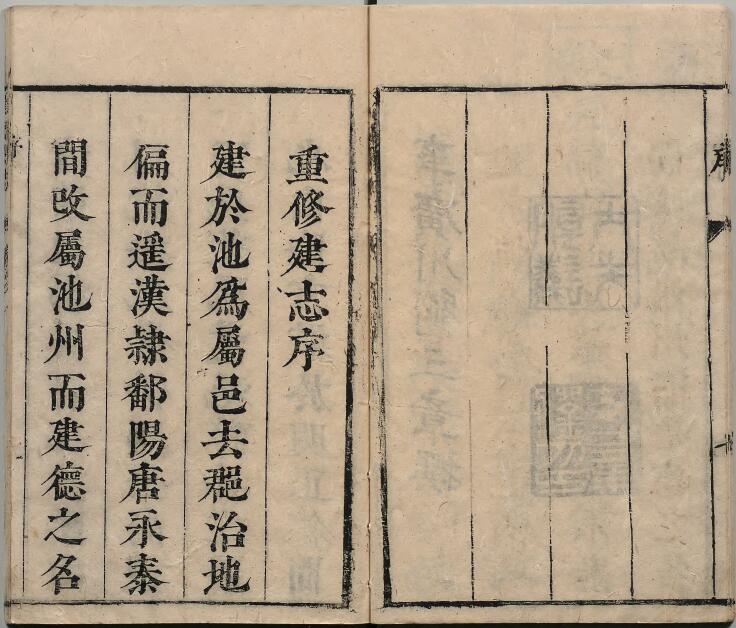 重修建志序
建於池爲屬邑去郡治地
偏而遥漢隸鄱陽唐永泰
間改屬池州而建德之名